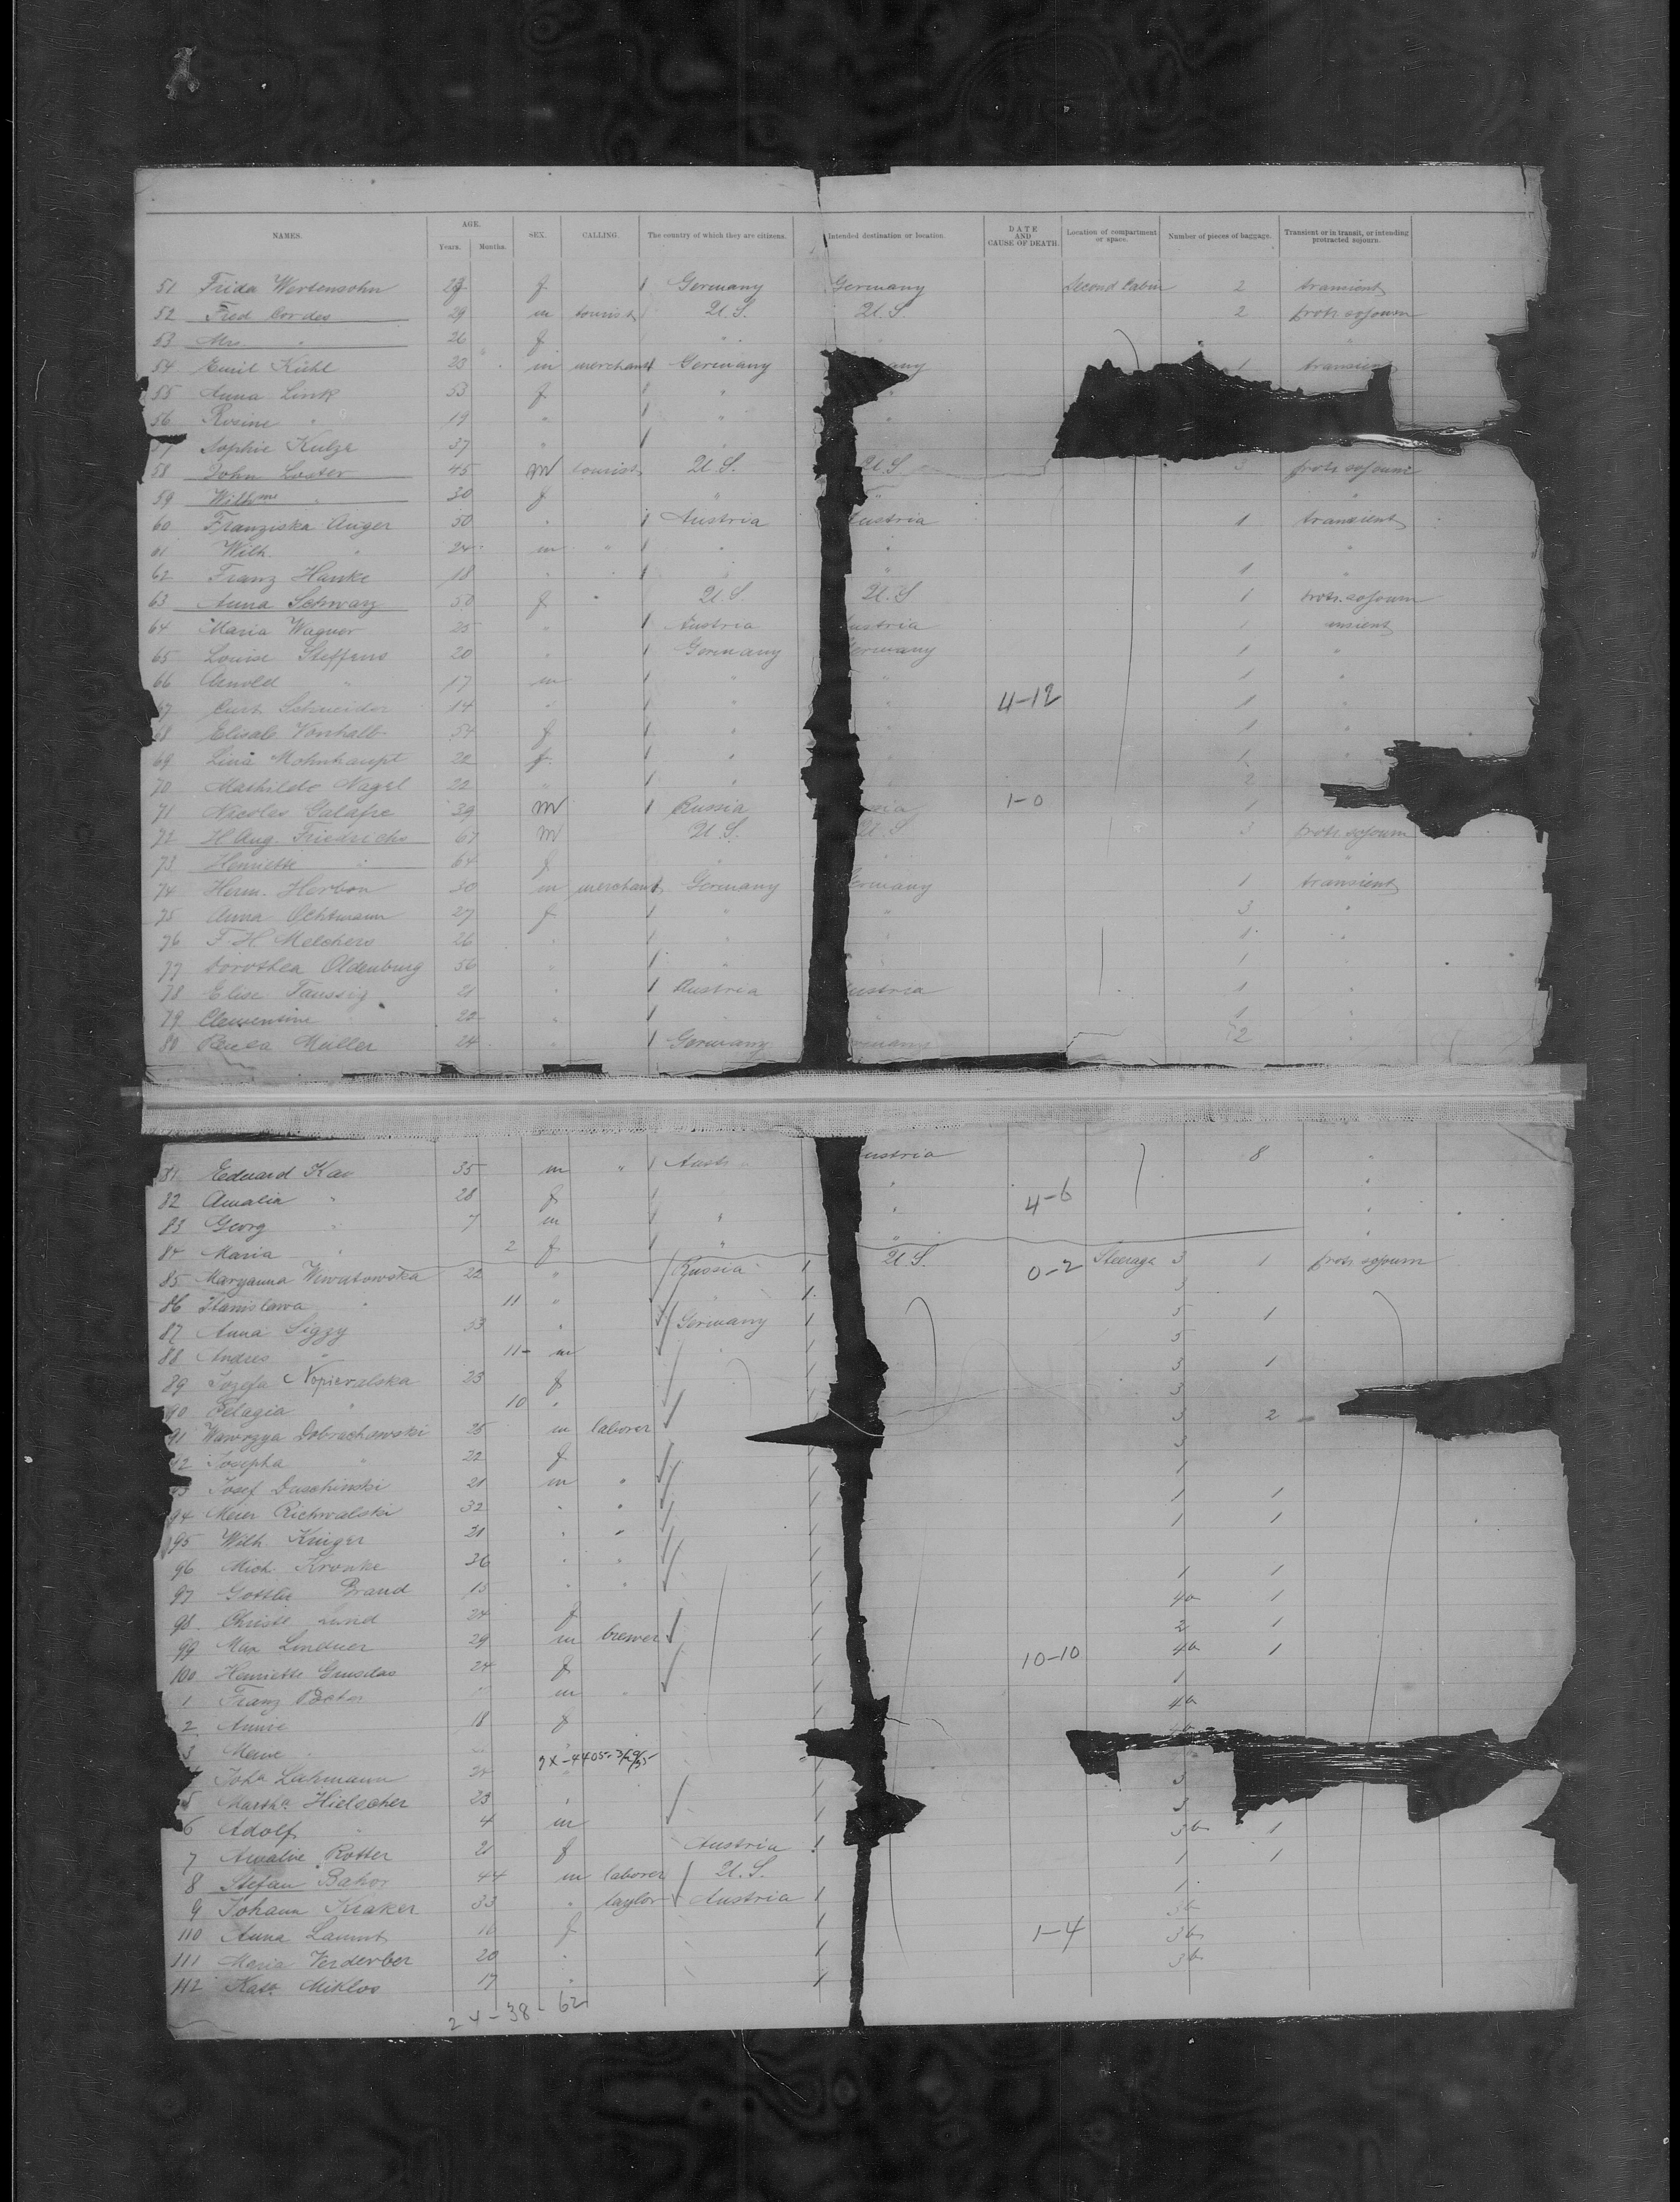 NAMES. AGE. Years. Months. SEX. CALLING. The country of which they are citizens. Intended destination or location. DATE AND CAUSE OF DEATH. Location of compartment or space. Number of pieces of baggage. Transient or in transit, or intending protracted sojourn.
51 Frida Wertensohn f Germany Germany Second Cabin 2 transient
52 Fred Cordes 29 m tourist U.S. U.S. 2 protr. sojourn
53 Mrs. " 26 f " "
54 Emil Kühl 23 m merchant Germany any 1 transient
55 Anna Link 53 f "
56 Rosine " 19 " "
57 Sophie Kulze 37 "
58 John Loster 45 m tourist U.S. U.S 3 protr. sojourn
59 Wilhme " 30 f " " "
60 Franziska Auger 50 " Austria ustria 1 transient
61 Wilh. " 24 m " " " "
62 Franz Hanke 18 " " " 1 "
63 Anna Schwarz 50 f " U.S. U.S 1 protr. sojourn
64 Maria Wagner 25 " Austria ustria 1 ansient
65 Louise Steffens 20 " Germany ermany 1 "
66 Arnold " 17 m " " 1 "
67 Curt Schneider 14 " " " 4-12 1 "
68 Elisab. Vonhalt 54 f " " 1 "
69 Lina Mohnhaupt 22 f. " 1
70 Mathilde Nagel 22 " " 2
71 Nicolas Galafre 39 m Russia sia 1-0 1
72 H Aug. Friedrichs 67 m U.S. U.S 3 protr. sojourn
73 Henriette " 64 f " " "
74 Herm. Herbon 30 m merchant Germany ermany 1 transient
75 Anna Ochtmann 27 f " " 3 "
76 F. H. Melchers 26 " " " 1 "
77 Dorothea Oldenburg 56 " " " 1 "
78 Elise Taussig 21 " Austria ustria 1 "
79 Clementine 20 " " " 1 "
80 Müller 24 " Germany rmany 2 "
81 Eduard Kav 35 m " Aust ustria 8 "
82 Amalia " 28 f " 4-6 "
83 Georg " 7 m " " "
84 Maria " 2 f " "
85 Maryanna Wewutowska 22 " Russia U.S. 0-2 Steerage 3 1 protr sojourn
86 Stanislawa " 11 " " 3
87 Anna Siggy 53 " Germany 5 1
88 Andres " 11 m 5
89 Jozefa Nopieralska 23 f 3 1
90 Pelagia " 10 " 3
91 Wawrzyn Dobrachowski 25 m laborer 3 2
92 Josepha " 22 f 3
93 Josef Duschinski 21 m " 1
94 Meier Richwalski 32 " " 1 1
95 Wilh. Kruger 31 " " 1 1
96 Mich. Kronke 26 " "
97 Gottlie Brand 15 " " 1 1
98 Christ. Lund 24 f 4a 1
99 Max Lindner 29 m brewer 2 1
100 Henriette Grusdas 24 f 10-10 4a 1
1 Franz m " 1
2 Annie 18 f 4a
3
7X-4405-3/29/35
4 Joha Lahmann 3
5 Martha Hielscher 23 " 3
6 Adolf " 4 m 3b 1
7 Amalie Rotter 21 f Austria 1 1
8 Stefan Bahor 44 m laborer U.S. 1
9 Johann Kraker 33 " taylor Austria
110 Anna f 1-4 3b
111 Maria Verderber 20 " 3b
112 Kata Miklos 17 "
24-38-62